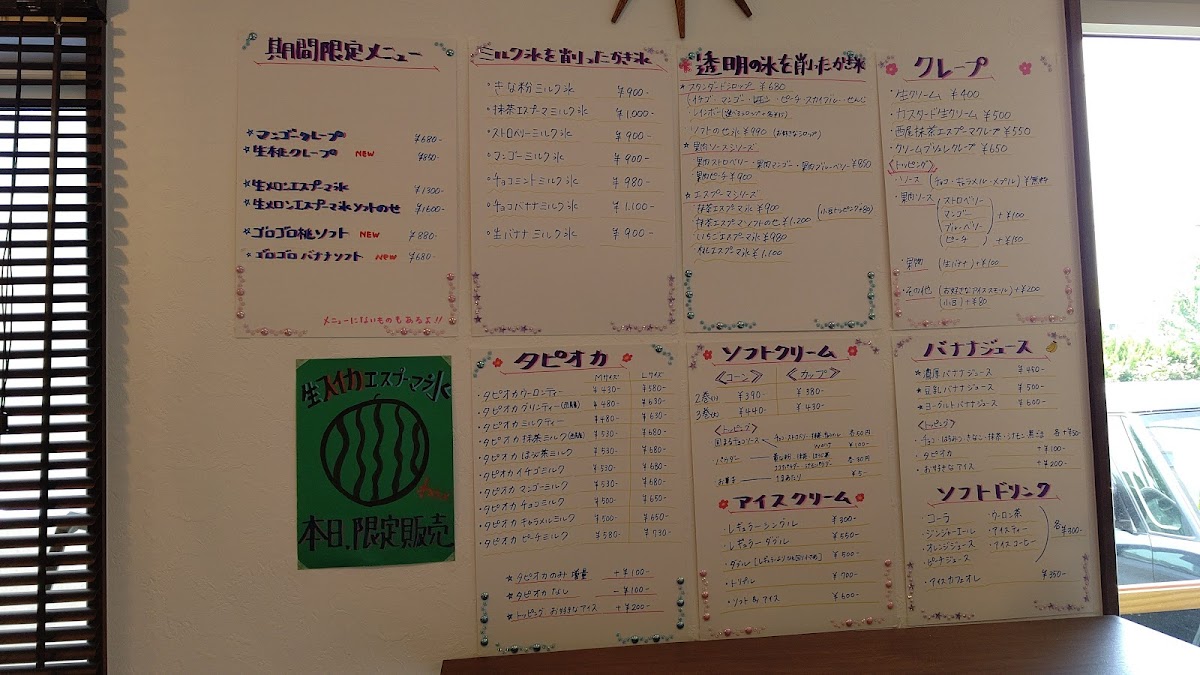 期間限定メニュー
★マンゴークレープ ¥680-
★生桃クレープ NEW ¥850-
★生メロンエスプーマ氷 ¥1300-
★生メロンエスプーマ氷ソフトのせ ¥1600-
★ゴロゴロ桃ソフト NEW ¥880-
★ゴロゴロバナナソフト NEW ¥680-
メニューにないものもあるよ!!
生スイカエスプーマ氷
本日、限定販売
ミルク氷を削ったかき氷
・きな粉ミルク氷 ¥900-
・抹茶エスプーマミルク氷 ¥1.000-
・ストロベリーミルク氷 ¥900-
・マンゴーミルク氷 ¥900-
・チョコミントミルク氷 ¥980-
・チョコバナナミルク氷 ¥1.100-
・生バナナミルク氷 ¥900-
透明の氷を削ったかき氷
★スタンダードシロップ ¥680
(イチゴ・マンゴー・レモン・ピーチ・スカイブルー・せんじ
・ソフトのせ氷 ¥990 (お好きなシロップ)
★果肉ソースシリーズ
果肉ストロベリー・果肉マンゴー・果肉ブルーベリー ¥850
果肉ピーチ ¥900
★エスプーマシリーズ
抹茶エスプーマ氷 ¥900 (小豆トッピング+80)
抹茶エスプーマソフトのせ ¥1.200
いちごエスプーマ氷 ¥980
桃エスプーマ氷 ¥1.100
クレープ
・生クリーム ¥400
・カスタード生クリーム ¥500
・西尾抹茶エスプーマクレープ ¥550
・クリームブリュレクレープ ¥650
《トッピング》
・ソース (チョコ・キャラメル・メープル) ¥無料
・果肉ソース (ストロベリー
マンゴー
ブルーベリー) +¥100
(ピーチ) +¥150
・果物 (生バナナ)+¥100
・その他 (お好きなアイススモール)+¥200
(小豆)+¥80
タピオカ
Mサイズ Lサイズ
・タピオカウーロンティー ¥430- ¥580-
・タピオカグリーンティー ¥480- ¥630-
・タピオカミルクティー ¥480- ¥630-
・タピオカ抹茶ミルク ¥530- ¥680-
・タピオカほうじ茶ミルク ¥530- ¥680-
・タピオカイチゴミルク ¥530- ¥680-
・タピオカマンゴーミルク ¥530- ¥680-
・タピオカチョコミルク ¥500- ¥650-
・タピオカキャラメルミルク ¥500- ¥650-
・タピオカピーチミルク ¥580- ¥730-
★タピオカのみ増量 +¥100-
★タピオカなし -¥100-
★トッピングお好きなアイス +¥200-
ソフトクリーム
《コーン》 《カップ》
2巻 ¥390- ¥380-
3巻 ¥440- ¥430-
《トッピング》
¥100-
パウダー 各30円
お菓子 ¥5-
アイスクリーム
・レギュラーシングル ¥300-
・レギュラーダブル ¥550-
・ダブル ¥500-
・トリプル ¥700-
・ソフト&アイス ¥600-
バナナジュース
★濃厚バナナジュース ¥450-
★豆乳バナナジュース ¥500-
★ヨーグルトバナナジュース ¥600-
《トッピング》
・チョコ・はちみつ・きなこ・抹茶・シナモン・黒ごま 各+¥50-
・タピオカ +¥100-
・お好きなアイス +¥200-
ソフトドリンク
・コーラ ・ウーロン茶
・ジンジャーエール ・アイスティー
・オレンジジュース ・アイスコーヒー 各¥300-
・ピーチジュース
・アイスカフェオレ ¥350-